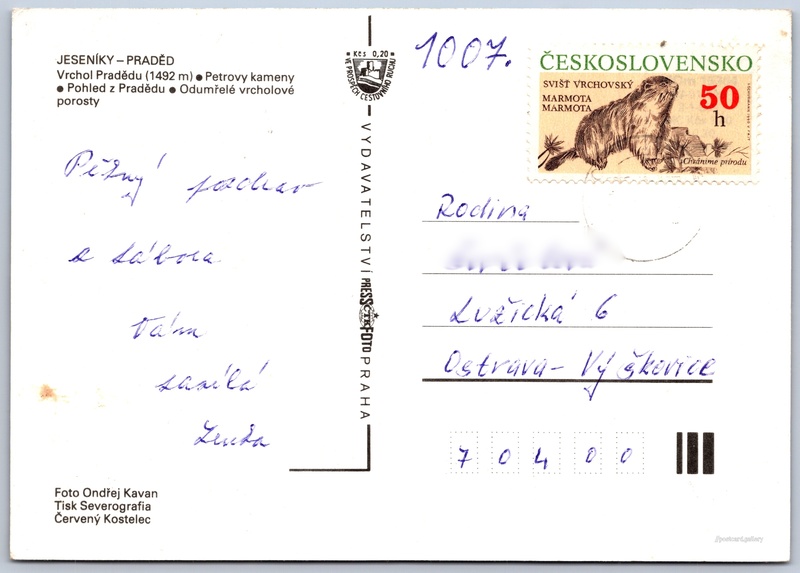 JESENÍKY – PRADĚD
Vrchol Pradědu (1492 m) ● Petrovy kameny
● Pohled z Pradědu ● Odumřelé vrcholové
porosty
Pěkný pozdrav
z tábora
Vám
zasílá
Lenka
Foto Ondřej Kavan
Tisk Severografia
Červený Kostelec
Kčs 0,20
VE PROSPĚCH CESTOVNÍHO RUCHU
VYDAVATELSTVÍ PRESSFOTO PRAHA
ČTK
1007.
ČESKOSLOVENSKO
SVIŠŤ VRCHOVSKÝ
MARMOTA
MARMOTA
50
h
Chráníme přírodu
Rodina
Lužická 6
Ostrava - Výškovice
70400
//postcard.gallery